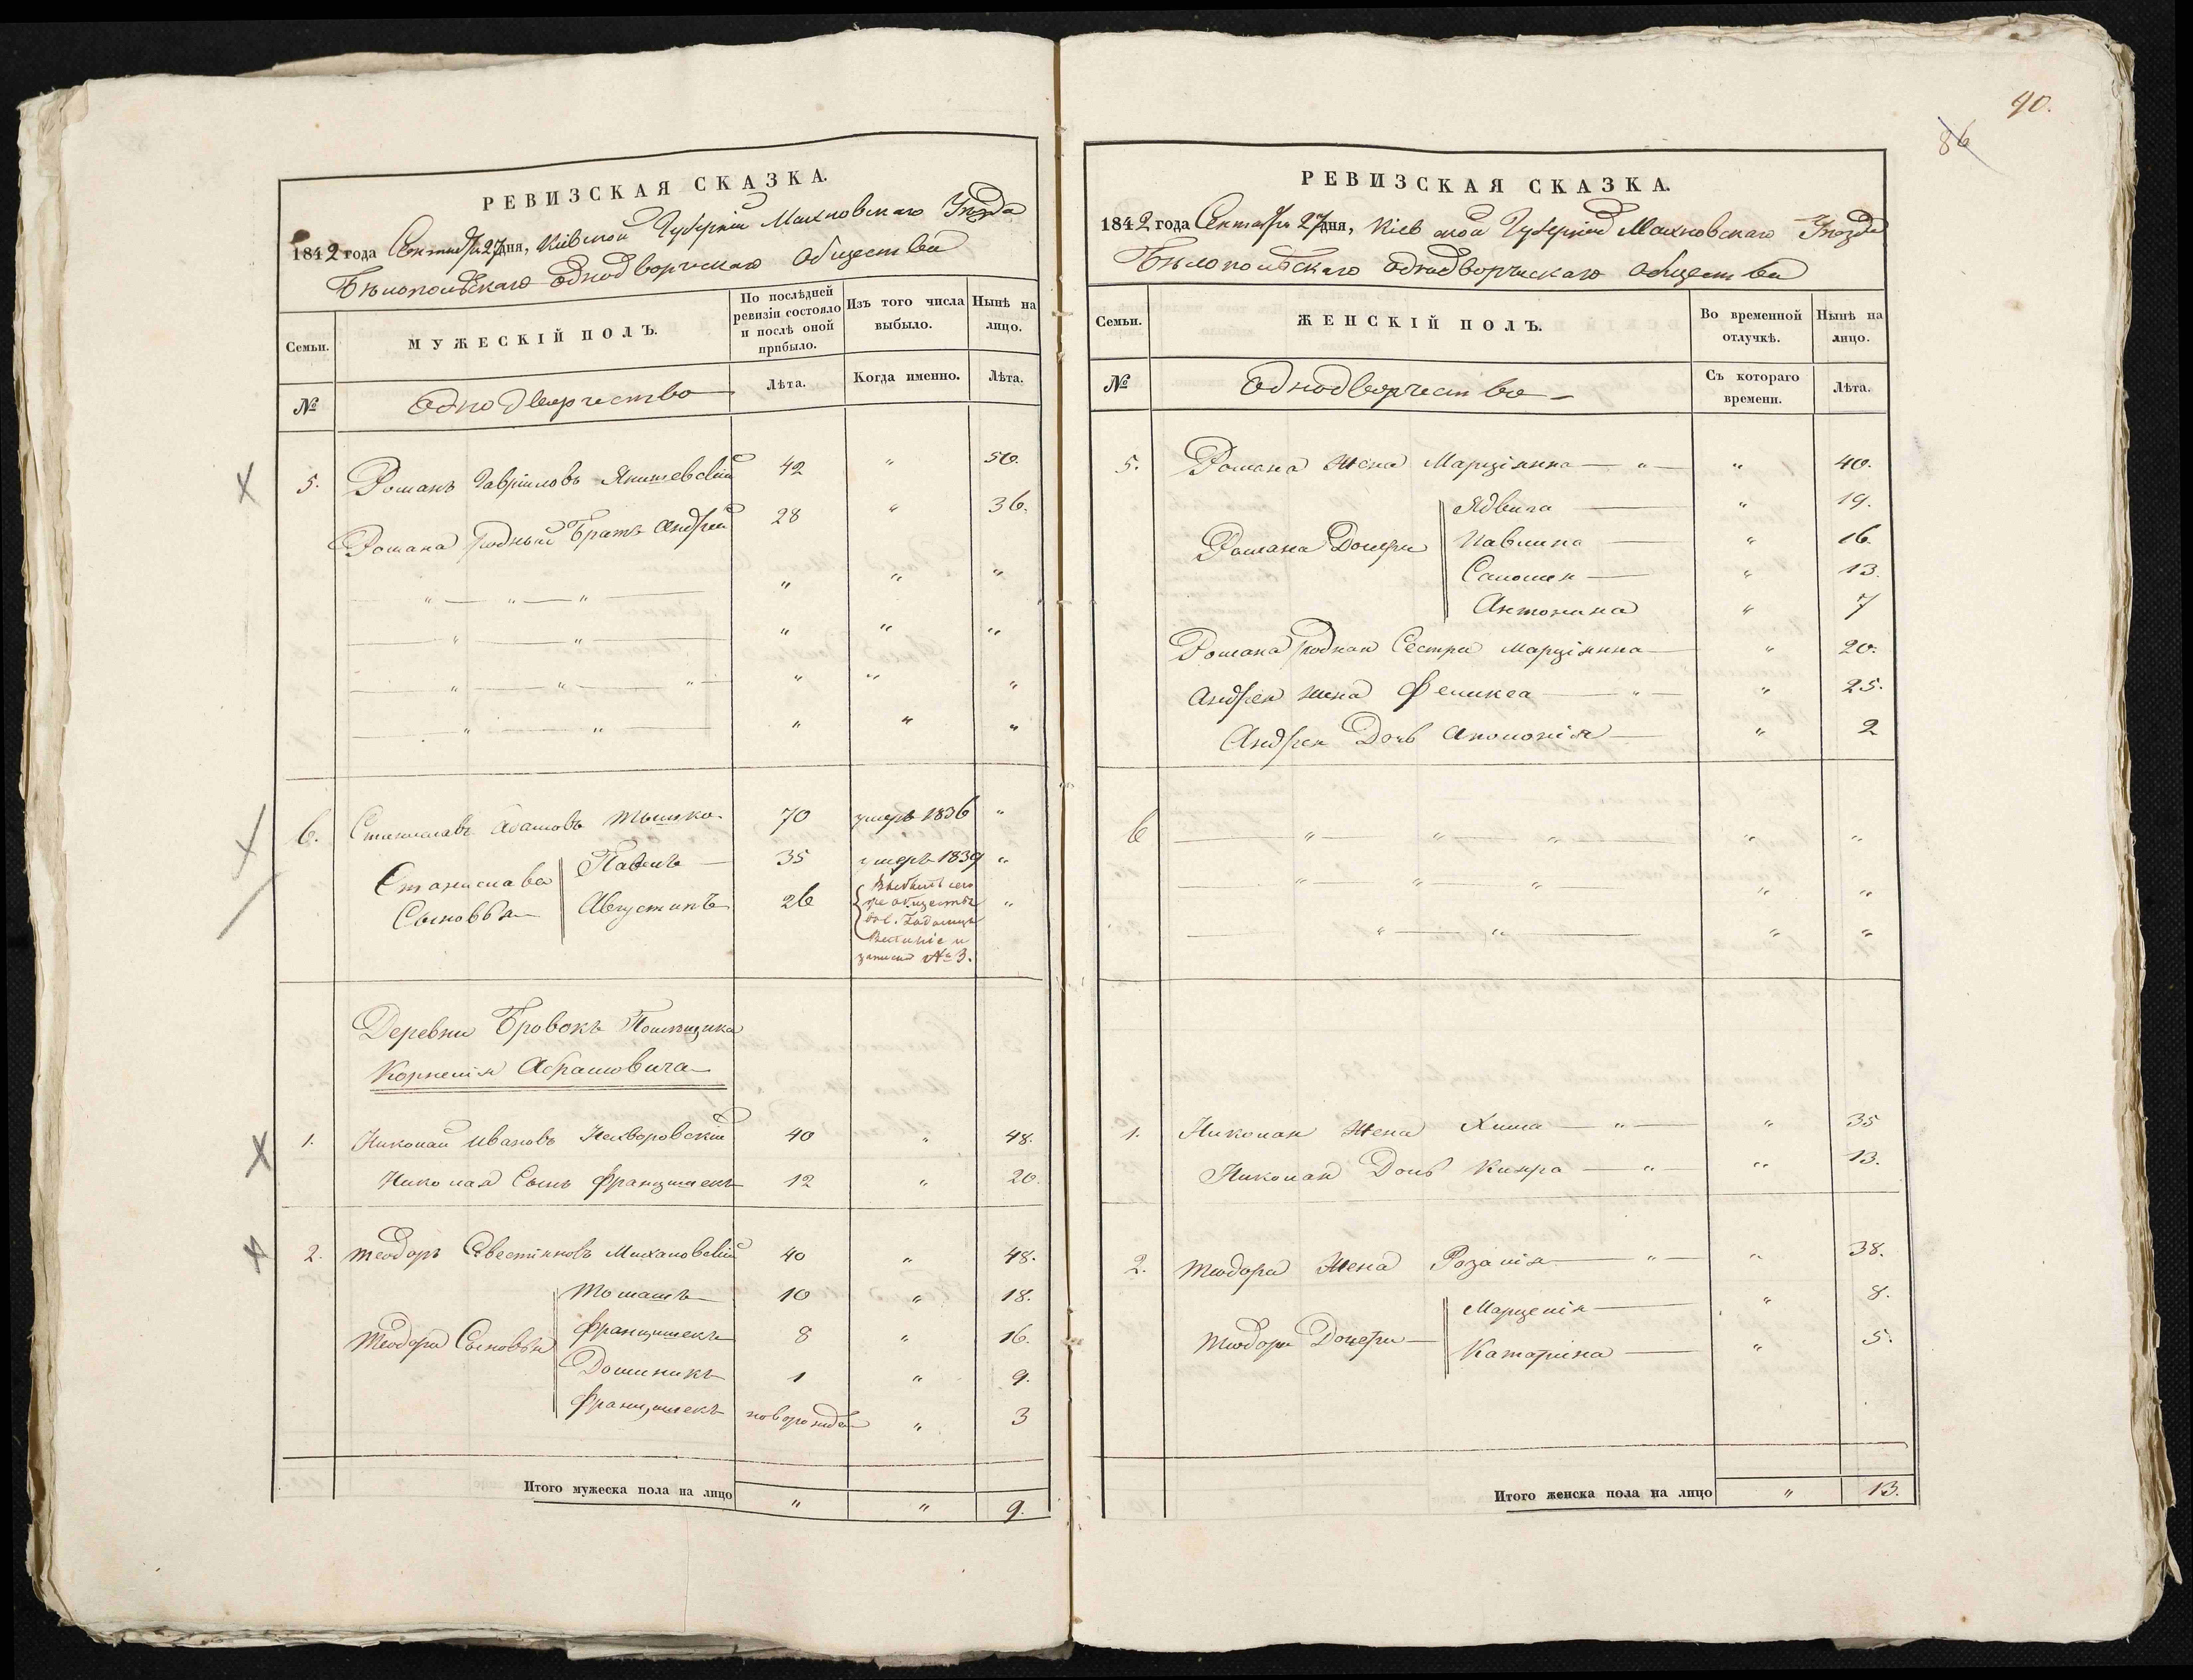 РЕВИЗСКАЯ СКАЗКА.
1842 года Сентября 27 дня, Кіевской Губерніи Махновскаго Уезда
Бѣлопольскаго однодворческаго общества
Семьи.
МУЖЕСКІЙ ПОЛЪ.
По послѣдней ревизіи состояло и послѣ оной прибыло.
Изъ того числа выбыло.
Нынѣ на лицо.
№
Однодворчество
Лѣта.
Когда именно.
Лѣта.
5. Романъ Гавріиловъ Янишевскій 42 " 50.
Романа родный Братъ Андрей 28 " 36.
" " " " " "
" " " " "
" " " " " "
" " " " "
6. Станиславъ Адамовъ Тышко. 70 умеръ 1836 "
Станислава Сыновья
Павелъ 35 умеръ 1839 "
Августинъ 26 "
записанъ № 3.
Деревни Бровокъ Помѣщика
Корнелія Абрамовича
1. Николай Ивановъ 40 " 48.
Николая Сынъ Францишекъ 12 " 20.
2. Теодоръ Михаловскій 40 " 48.
Теодора Сыновья
Томашъ 10 " 18.
Францишекъ 8 " 16.
Доминикъ 1 " 9.
Францишекъ новорожден " 3
Итого мужеска пола на лицо " " 9.
90.
86
РЕВИЗСКАЯ СКАЗКА.
1842 года Сентября 27 дня, Кіевской Губерніи Махновскаго Уезда
Бѣлопольскаго однодворческаго общества
Семьи.
ЖЕНСКІЙ ПОЛЪ.
Во временной отлучкѣ.
Нынѣ на лицо.
№
Однодворчество
Съ котораго времени.
Лѣта.
5. Романа Жена Марціянна " " 40.
Романа Дочери
Ядвига " 19.
Павлина " 16.
Саломея " 13.
Антонина " 7
Романа родная Сестра Марціянна " 20.
Андрея жена Феликса " " 25.
Андрея Дочь Аполонія " 2
6 " " " " "
" " " " "
" " " "
1. Николая Жена " " 35
Николая Дочь " " 13.
2. Теодора Жена Розалія " " 38.
Теодора Дочери
Марцелія " 8.
Катарина " 5.
Итого женска пола на лицо " 13.